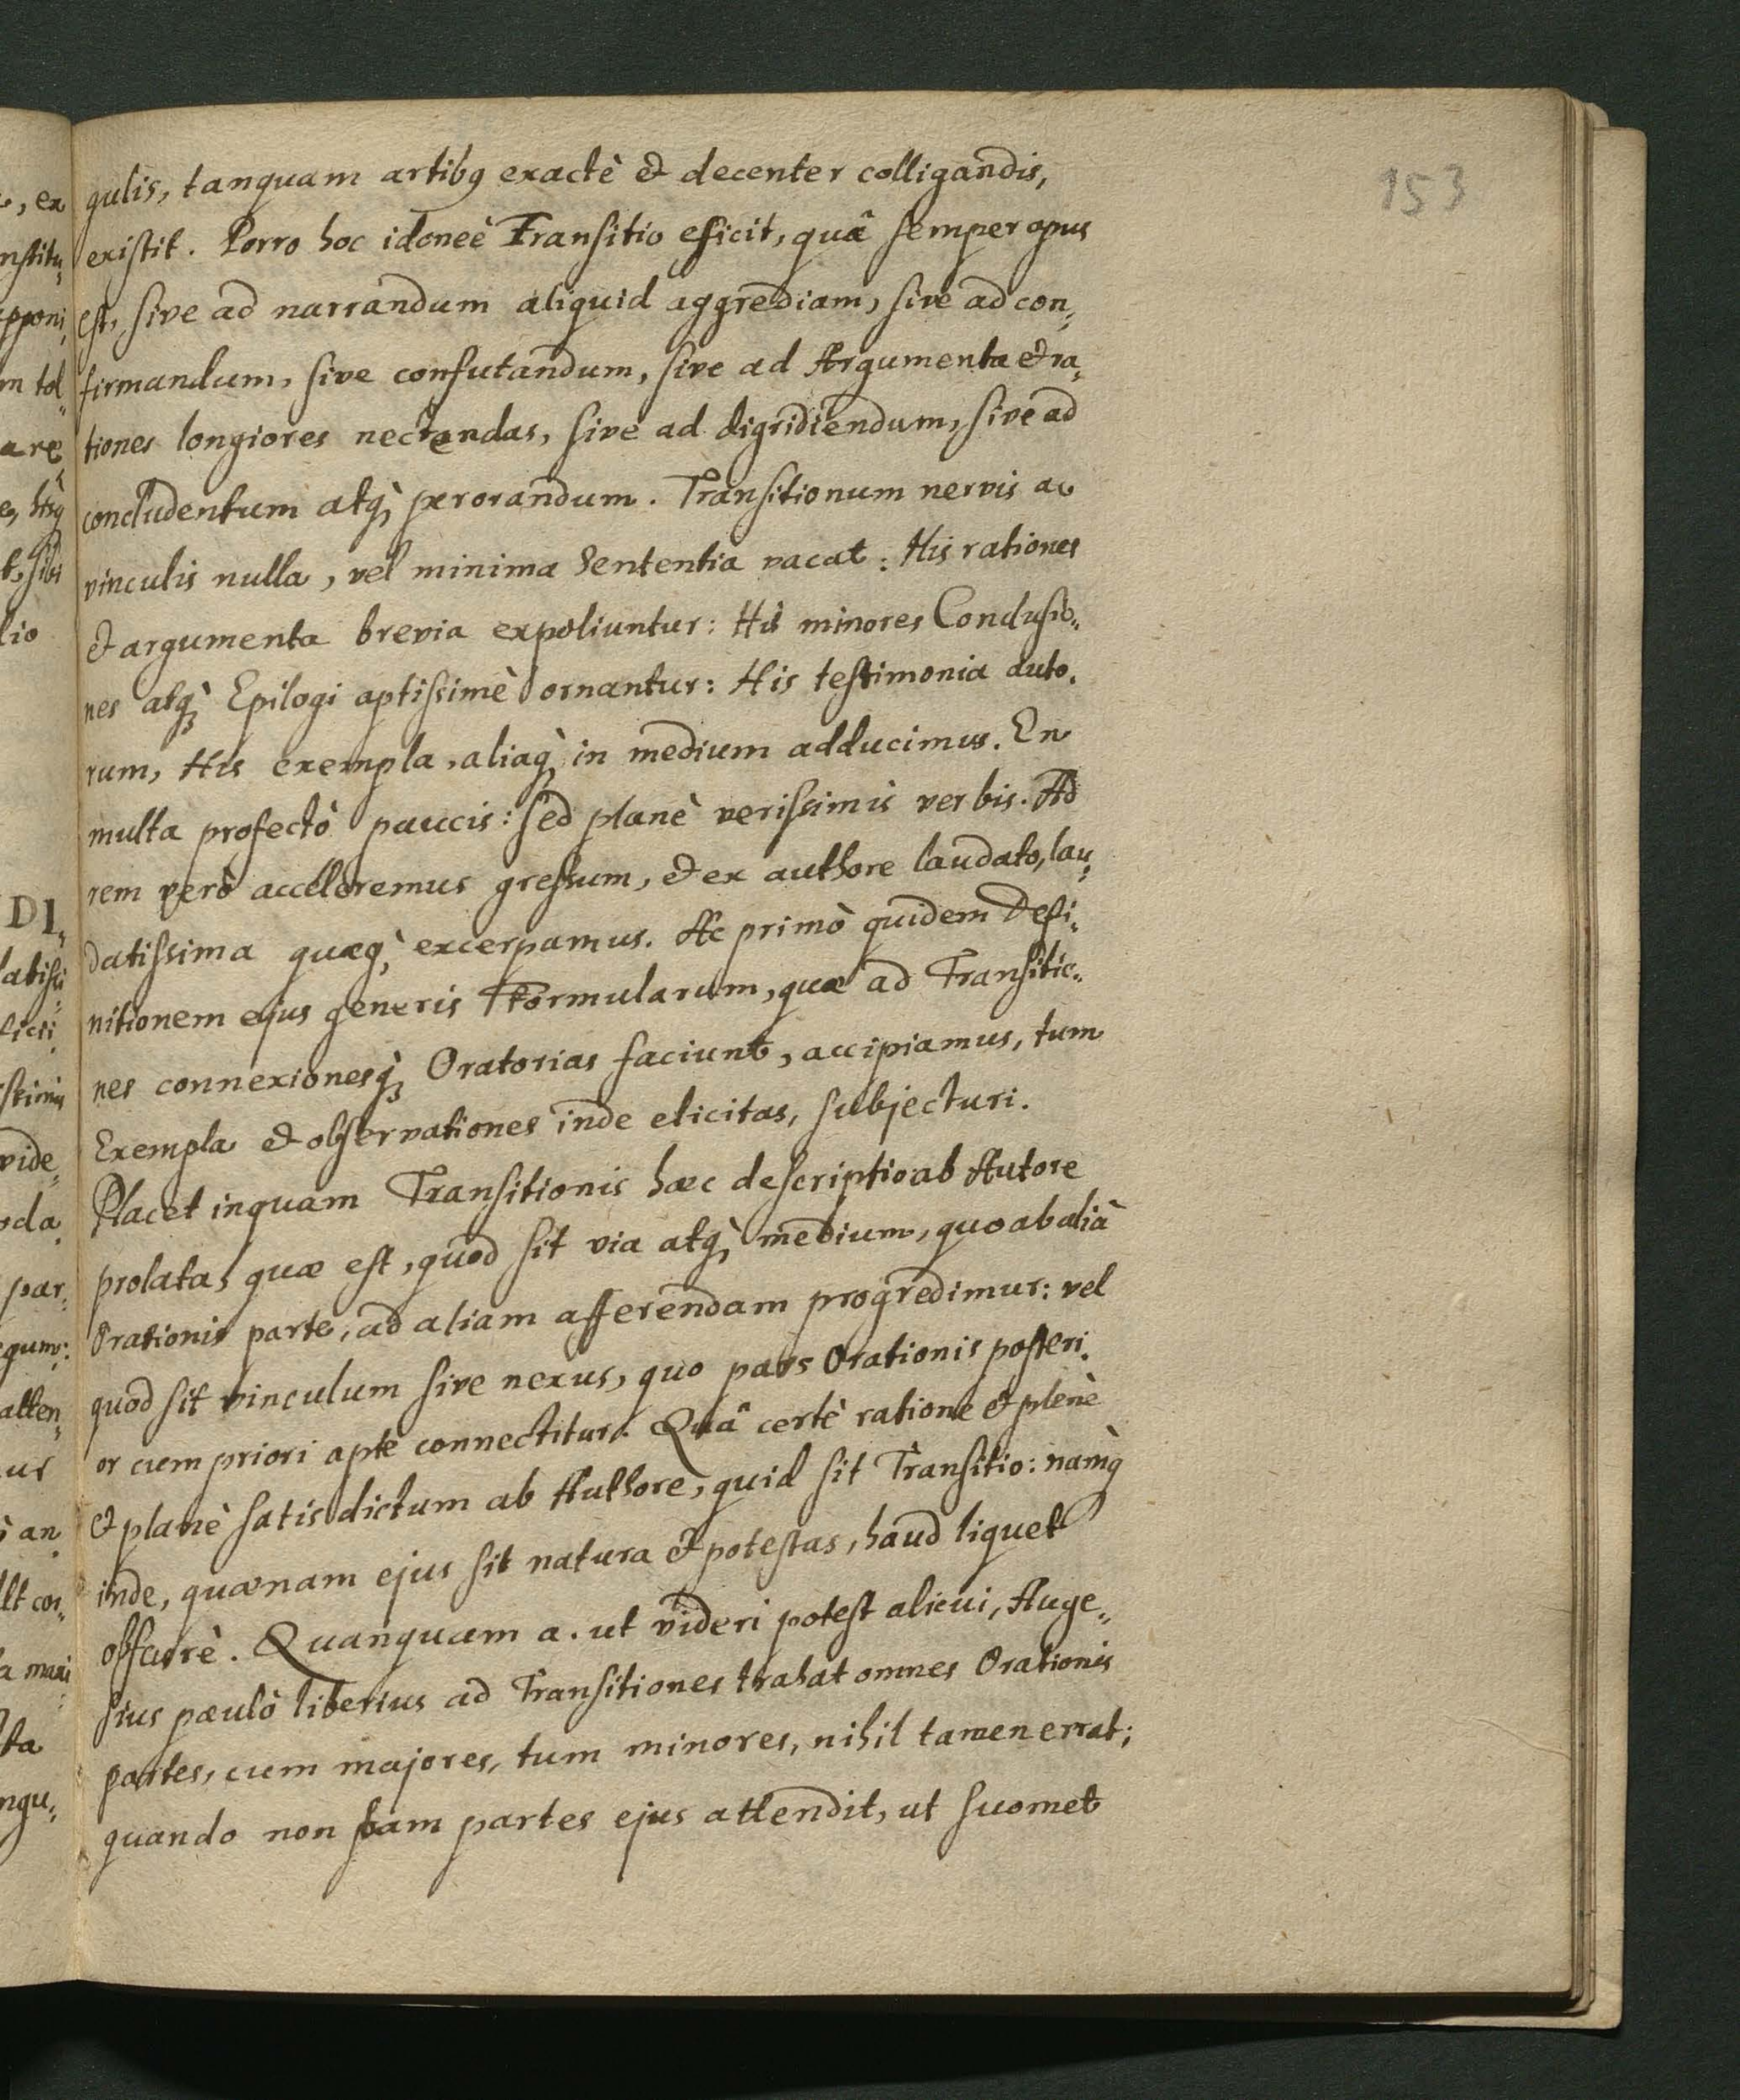 153
gulis, tanquam artibꝰ exactè & decenter colligandis,
existit. Porro hoc idoneè Transitio efficit, quâ semper opus
est, sive ad narrandum aliquid aggrediam, sive ad con„
firmandum, sive confutandum, sive ad Argumenta & ra„
tiones longiores nectendas, sive ad digridiendum, sive ad
concludentum atq̀ꝫ perorandum. Transitionum nervis ac
vinculis nulla, vel minima Sententia vacat: His rationes
& argumenta brevia expoliuntur: His minores Conclusio„
nes atq̀ꝫ Epilogi aptissimè ornantur: His testimonia auto„
rum, His exempla, aliaq̀ꝫ in medium adducimus. En
multa profectò paucis: sed planè verissimis verbis. Ad
rem verò acceleremus gressum, & ex authore laudato, lau„
datissima quæq̀ꝫ excerpamus. Ac primò quidem Defi„
nitionem ejus generis Formularum, quæ ad Transitio„
nes connexionesq̀ꝫ Oratorias faciunt, accipiamus, tum
Exempla & observationes inde elicitas, subjecturi.
Placet inquam Transitionis hæc descriptio ab Autore
prolata, quæ est, quod sit via atq̀ꝫ medium, quo ab aliâ
Orationis parte, ad aliam afferendam progredimur: vel
quod sit vinculum sive nexus, quo pars Orationis posteri„
or cum priori aptè connectitur. Quâ certè ratione & plenè
& planè satis dictum ab Authore, quid sit Transitio: namq̀
inde, quænam ejus sit natura & potestas, haud liquet
obscurè. Quanquam a. ut videri potest alicui, Auge„
sius paulò liberius ad Transitiones trahat omnes Orationis
partes, cum majores, tum minores, nihil tamen errat;
quando non tam partes ejus attendit, ut suomet